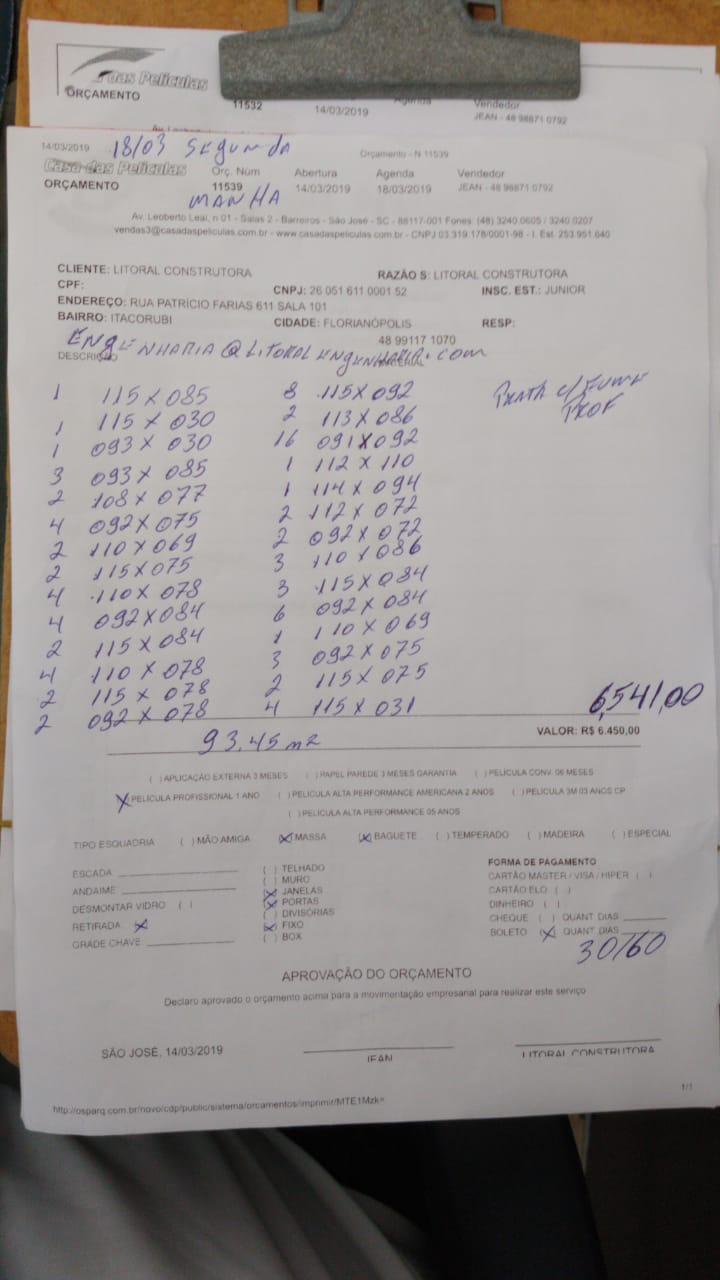 das Películas
ORÇAMENTO
11532
14/03/2019
Agenda
Vendedor
JEAN - 48 98871 0792
14/03/2019
18/03 SEGUNDA
Orçamento - N 11539
Casa das Películas
ORÇAMENTO
Orç. Núm Abertura Agenda Vendedor
11539 14/03/2019 18/03/2019 JEAN - 48 98871 0792
MANHA
Av. Leoberto Leal, n 01 - Salas 2 - Barreiros - São José - SC - 88117-001 Fones: (48) 3240.0605 / 3240.0207
vendas3@casadaspeliculas.com.br - www.casadaspeliculas.com.br - CNPJ 03.319.178/0001-98 - I. Est. 253.951.640
CLIENTE: LITORAL CONSTRUTORA RAZÃO S: LITORAL CONSTRUTORA
CPF: CNPJ: 26 051 611 0001 52 INSC. EST.: JUNIOR
ENDEREÇO: RUA PATRÍCIO FARIAS 611 SALA 101
BAIRRO: ITACORUBI CIDADE: FLORIANÓPOLIS RESP:
48 99117 1070
ENGENHARIA@LITORALENGENHARIA.COM
DESCRIÇÃO
1 115 X 085 8 115 X 092 PRATA C/ FUME
1 115 X 030 2 113 X 086 PROF
1 093 X 030 16 091 X 092
3 093 X 085 1 112 X 110
2 108 X 077 1 114 X 094
4 092 X 075 2 112 X 072
2 110 X 069 2 092 X 072
2 115 X 075 3 110 X 086
4 110 X 078 3 115 X 084
4 092 X 084 6 092 X 084
2 115 X 084 1 110 X 069
4 110 X 078 3 092 X 075
2 115 X 078 2 115 X 075
2 092 X 078 4 115 X 031
6,541,00
93,45 m2
VALOR: R$ 6.450,00
( ) APLICAÇÃO EXTERNA 3 MESES ( ) PAPEL PAREDE 3 MESES GARANTIA ( ) PELÍCULA CONV. 06 MESES
(X) PELÍCULA PROFISSIONAL 1 ANO ( ) PELÍCULA ALTA PERFORMANCE AMERICANA 2 ANOS ( ) PELÍCULA 3M 03 ANOS CP
( ) PELÍCULA ALTA PERFORMANCE 05 ANOS
TIPO ESQUADRIA ( ) MÃO AMIGA (X) MASSA (X) BAGUETE ( ) TEMPERADO ( ) MADEIRA ( ) ESPECIAL
ESCADA
ANDAIME
DESMONTAR VIDRO ( )
RETIRADA X
GRADE CHAVE
( ) TELHADO
( ) MURO
(X) JANELAS
(X) PORTAS
( ) DIVISÓRIAS
(X) FIXO
( ) BOX
FORMA DE PAGAMENTO
CARTÃO MASTER / VISA / HIPER ( )
CARTÃO ELO ( )
DINHEIRO ( )
CHEQUE ( ) QUANT DIAS
BOLETO (X) QUANT DIAS
30/60
APROVAÇÃO DO ORÇAMENTO
Declaro aprovado o orçamento acima para a movimentação empresarial para realizar este serviço
SÃO JOSÉ, 14/03/2019
JEAN
LITORAL CONSTRUTORA
1/1
http://osparq.com.br/novo/cdp/public/sistema/orcamentos/imprimir/MTE1Mzk=